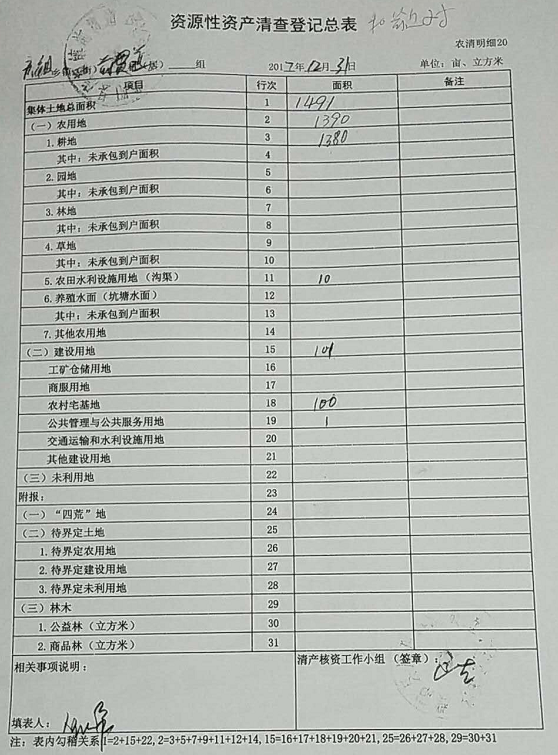 资源性资产清查登记总表
农清明细20
组 2017年12月31日 单位：亩、立方米
项目 行次 面积 备注
集体土地总面积 1 1491
（一）农用地 2 1390
1.耕地 3 1380
其中：未承包到户面积 4
2.园地 5
其中：未承包到户面积 6
3.林地 7
其中：未承包到户面积 8
4.草地 9
其中：未承包到户面积 10
5.农田水利设施用地（沟渠） 11 10
6.养殖水面（坑塘水面） 12
其中：未承包到户面积 13
7.其他农用地 14
（二）建设用地 15 101
工矿仓储用地 16
商服用地 17
农村宅基地 18 100
公共管理与公共服务用地 19 1
交通运输和水利设施用地 20
其他建设用地 21
（三）未利用地 22
附报： 23
（一）“四荒”地 24
（二）待界定土地 25
1.待界定农用地 26
2.待界定建设用地 27
3.待界定未利用地 28
（三）林木 29
1.公益林（立方米） 30
2.商品林（立方米） 31
相关事项说明： 清产核资工作小组（签章）：
填表人：
注：表内勾稽关系1=2+15+22, 2=3+5+7+9+11+12+14, 15=16+17+18+19+20+21, 25=26+27+28, 29=30+31